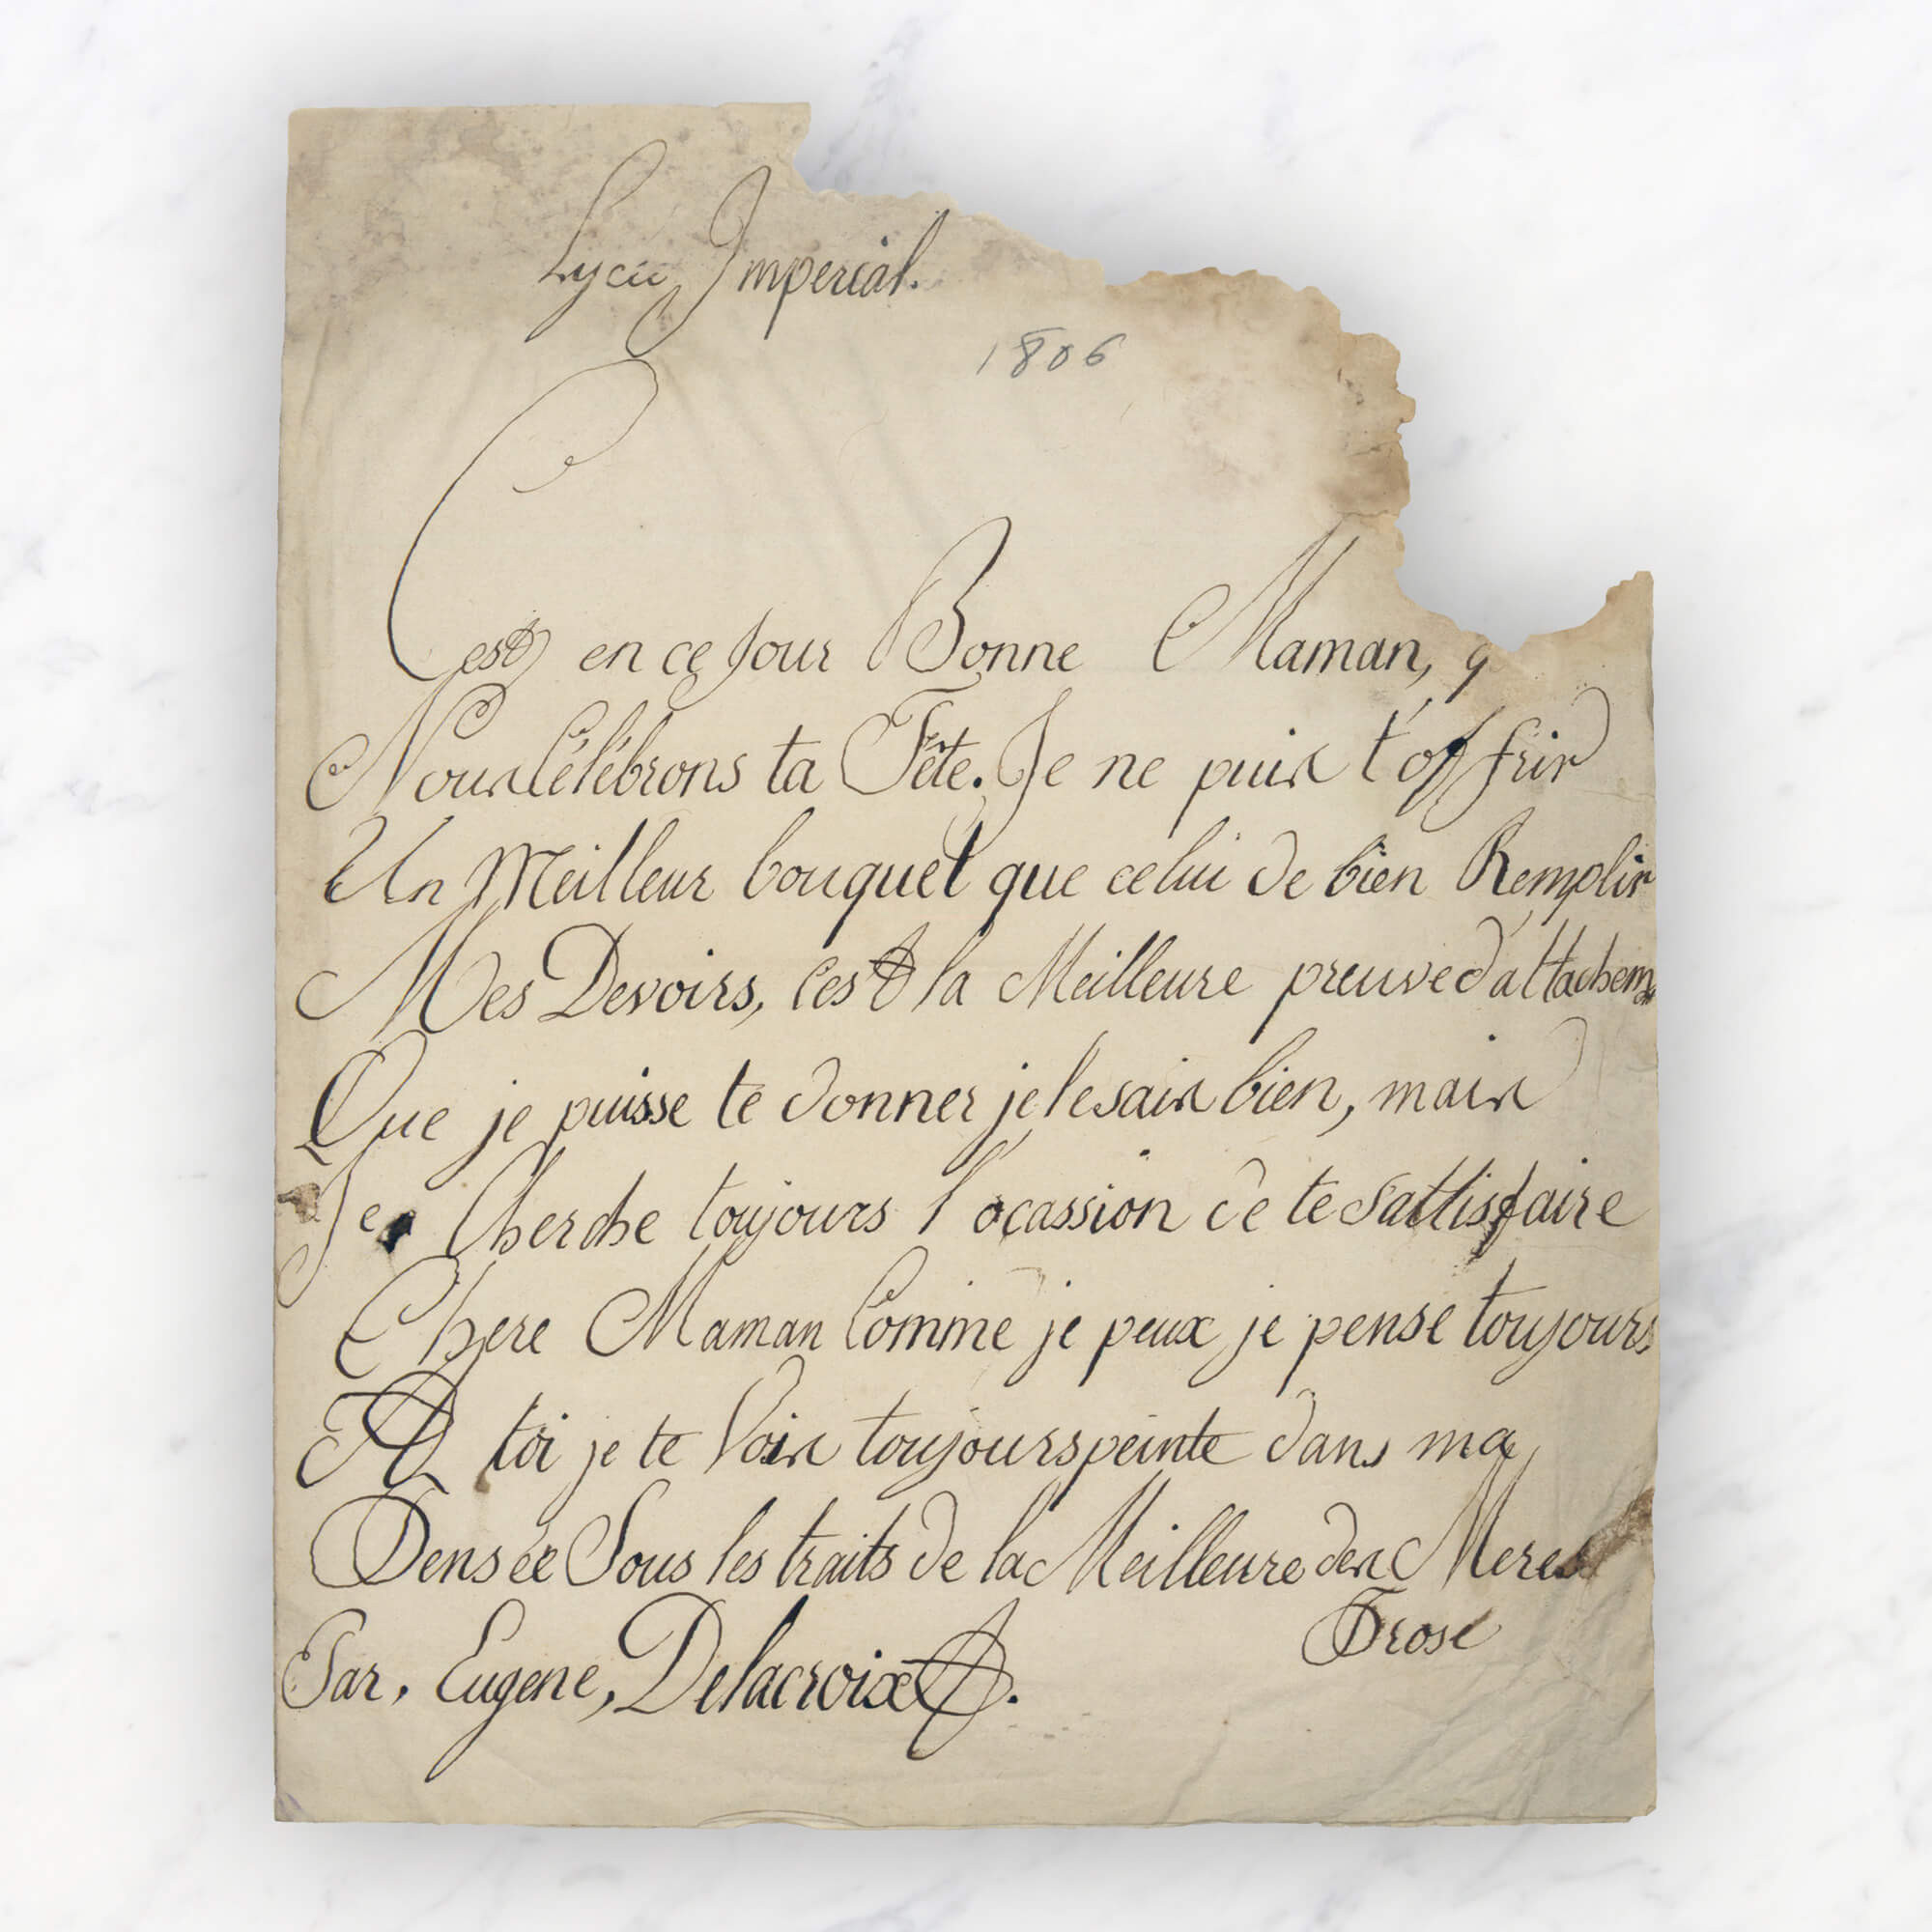 Lycée Imperial.
1806
Cest en ce Jour Bonne Maman, q
Nous Célébrons ta Fête. Je ne puis t'offrir
Un Meilleur bouquet que celui de bien Remplir
Mes Devoirs, Cest la Meilleure preuve d'attachem
Que je puisse te donner je le sais bien, mais
Je Cherche toujours l'ocassion de te Sattisfaire
Chere Maman Comme je peux je pense toujours
A toi je te Vois toujours peinte dans ma
Pensée Sous les traits de la Meilleure des Meres
Prose
Par, Eugene, Delacroix.